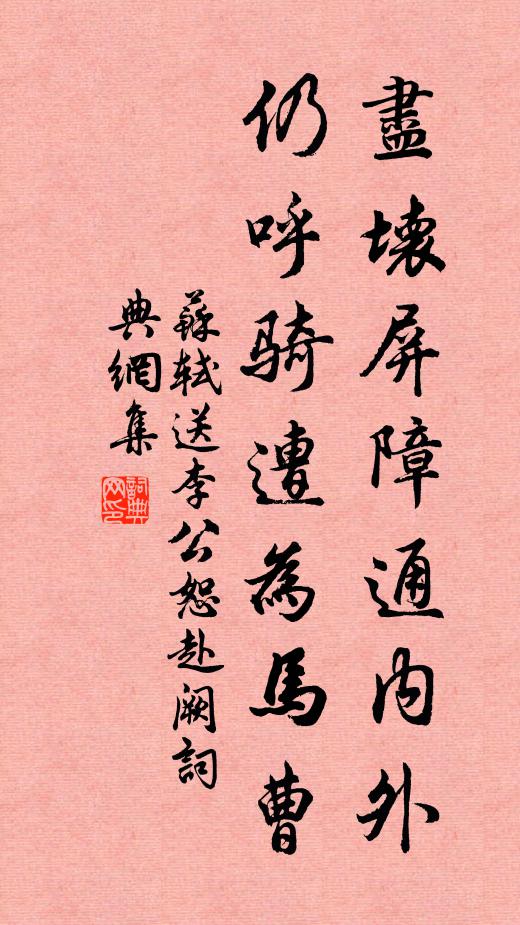 盡壞屏障通內外
仍呼騎遭為馬曹
蘇軾送李公恕赴阙詞
典網集
詞典网印